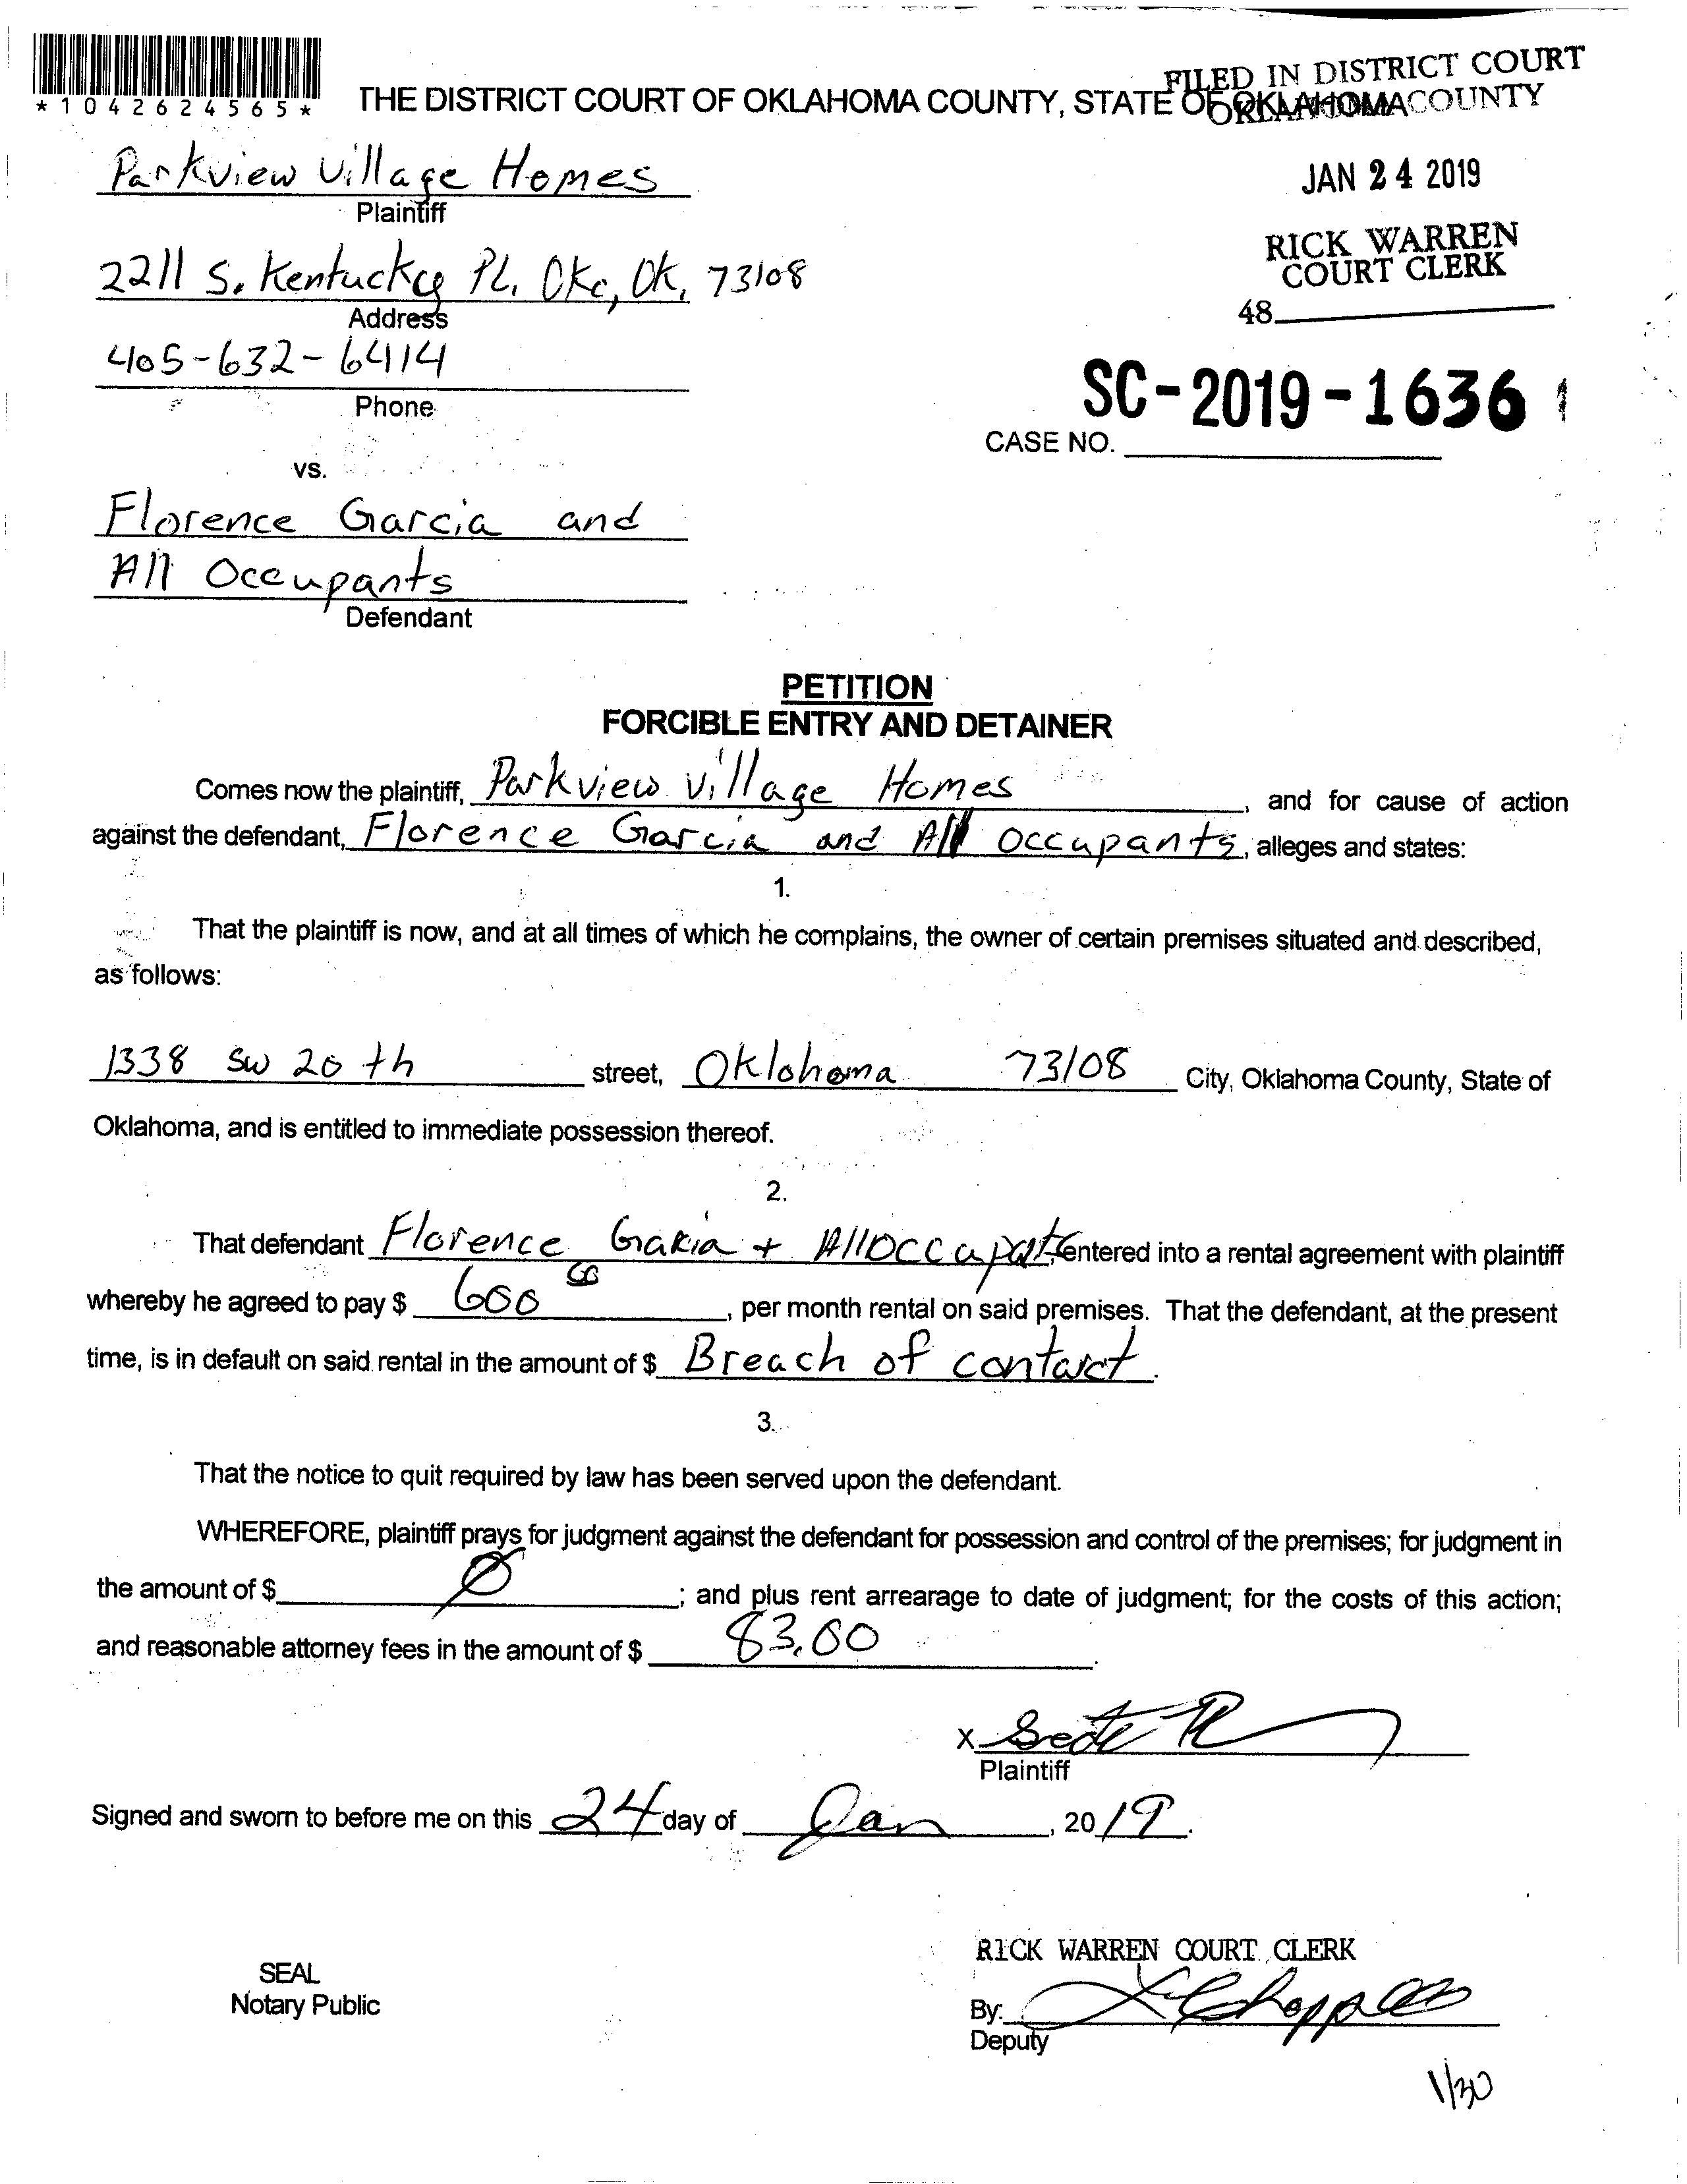 *1042624565*
FILED IN DISTRICT COURT
OKLAHOMA COUNTY
THE DISTRICT COURT OF OKLAHOMA COUNTY, STATE OF OKLAHOMA
Parkview Village Homes
Plaintiff
JAN 24 2019
RICK WARREN
COURT CLERK
48
2211 S. Kentucky Pl. Okc, Ok, 73108
Address
405-632-6414
Phone
SC-2019-1636
CASE NO.
vs.
Florence Garcia and
All Occupants
Defendant
PETITION
FORCIBLE ENTRY AND DETAINER
Comes now the plaintiff, Parkview Village Homes, and for cause of action
against the defendant, Florence Garcia and All Occupants, alleges and states:
1.
That the plaintiff is now, and at all times of which he complains, the owner of certain premises situated and described,
as follows:
1338 SW 20th street, Oklahoma 73108 City, Oklahoma County, State of
Oklahoma, and is entitled to immediate possession thereof.
2.
That defendant Florence Garcia + All Occupants, entered into a rental agreement with plaintiff
whereby he agreed to pay $ 600 00, per month rental on said premises. That the defendant, at the present
time, is in default on said rental in the amount of $ Breach of contarct.
3.
That the notice to quit required by law has been served upon the defendant.
WHEREFORE, plaintiff prays for judgment against the defendant for possession and control of the premises; for judgment in
the amount of $ Ø; and plus rent arrearage to date of judgment; for the costs of this action;
and reasonable attorney fees in the amount of $ 83.00.
X
Plaintiff
Signed and sworn to before me on this 24 day of Jan, 2019.
RICK WARREN COURT CLERK
SEAL
Notary Public
By:
Deputy
1/30